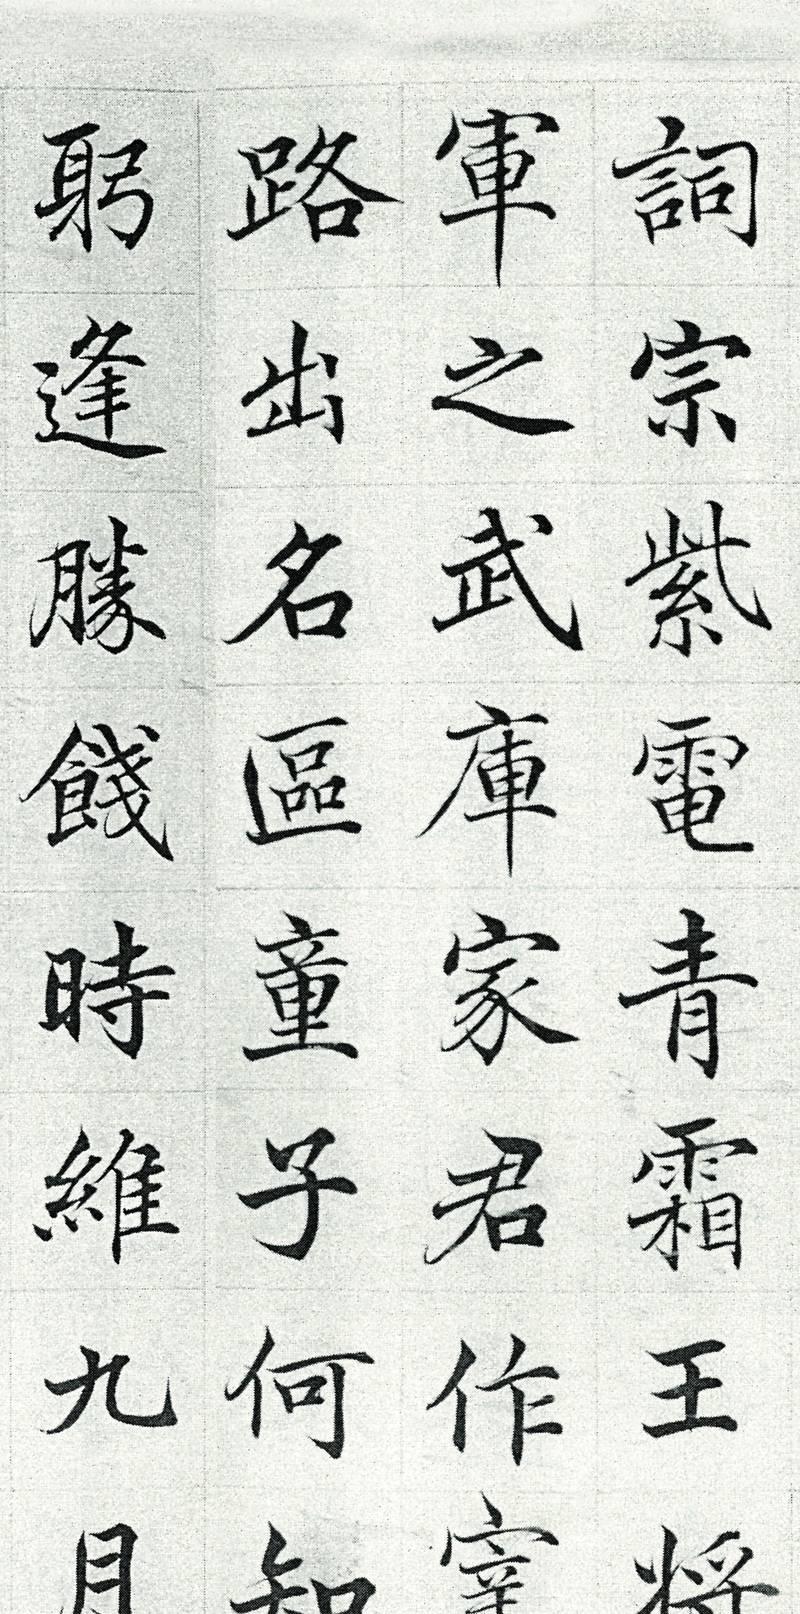 詞宗紫電青霜王將
軍之武庫家君作宰
路出名區童子何知
躬逢勝餞時維九月